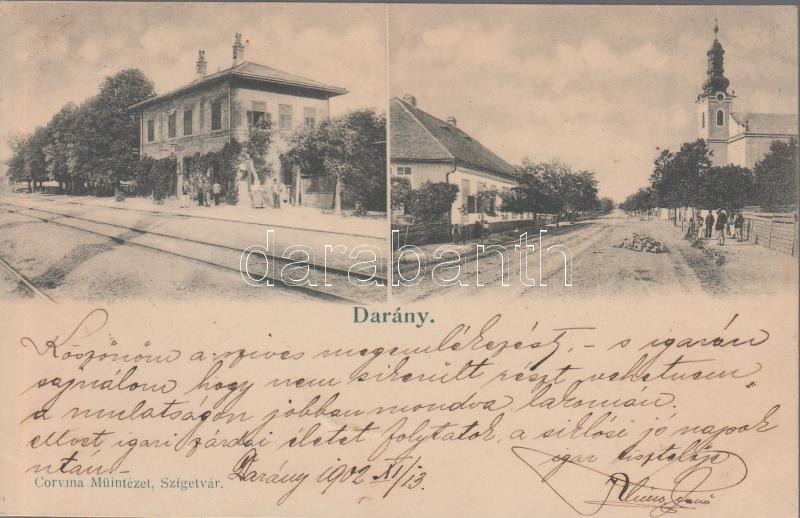 darabanth
Darány.
Köszönöm a szives megemlékezést, – s igazán
sajnálom hogy nem sikerült részt vehetnem
a mulatságon jobban mondva lakomán.
Most igazi zárdai életet folytatok, a siklósi jó napok
után –
igaz tisztelője
Darány 1902 XI/13.
Corvina Müintézet, Szigetvár.